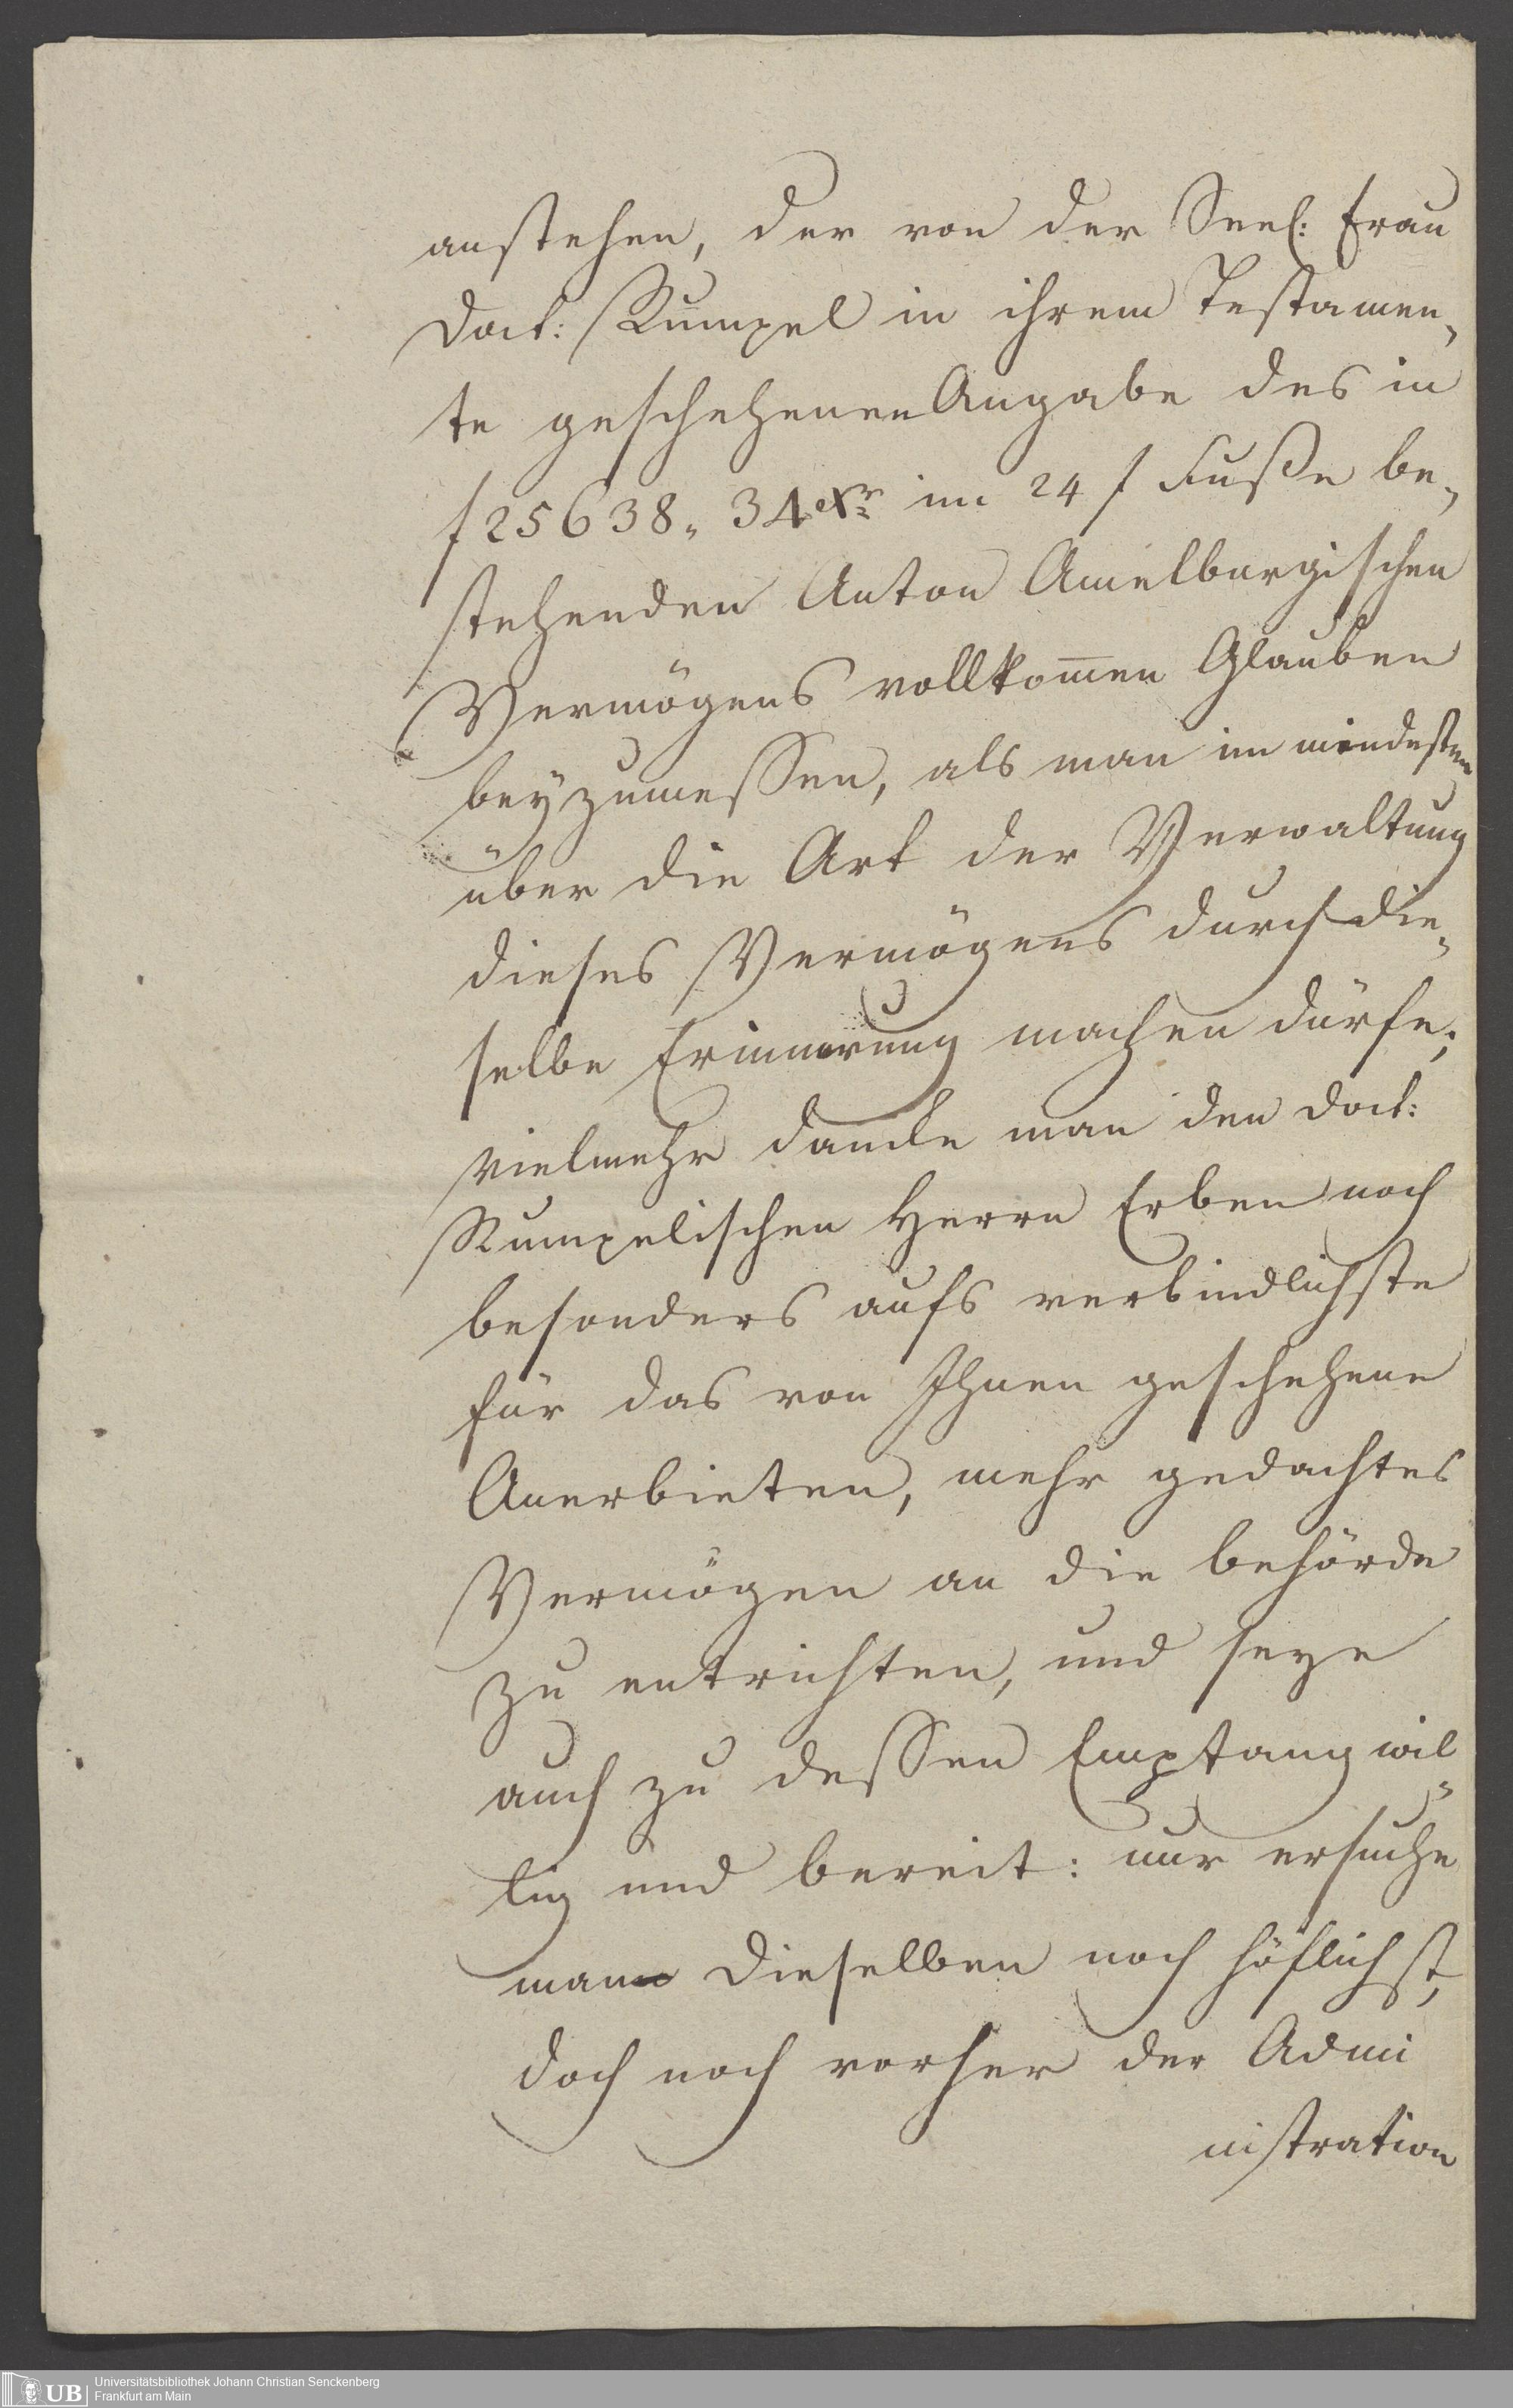 anstehen, der von der Seel: Frau
Doct: Rumpel in ihrem Testamen,
te geschehenen Angabe des in
f 25638„ 34 Xr im 24 f Fuße be,
stehenden Anton Amelburgischen
Vermögens vollkom̅en Glauben
beyzumessen, als man im mindesten
über die Art der Verwaltung
dieses Vermögens durch die,
selbe Erinnerung machen dürfe;
vielmehr dancke man den Doct:
Rumpelischen Herrn Erben noch
besonders aufs verbindlichste
für das von Ihnen geschehene
Anerbieten, mehr gedachtes
Vermögen an die behörde
zu entrichten, und seye
auch zu dessen Empfang wil„
lig und bereit: nur ersuche
man dieselben noch höflichst,
doch noch vorher der Admi
nistration
UB
Universitätsbibliothek Johann Christian Senckenberg
Frankfurt am Main